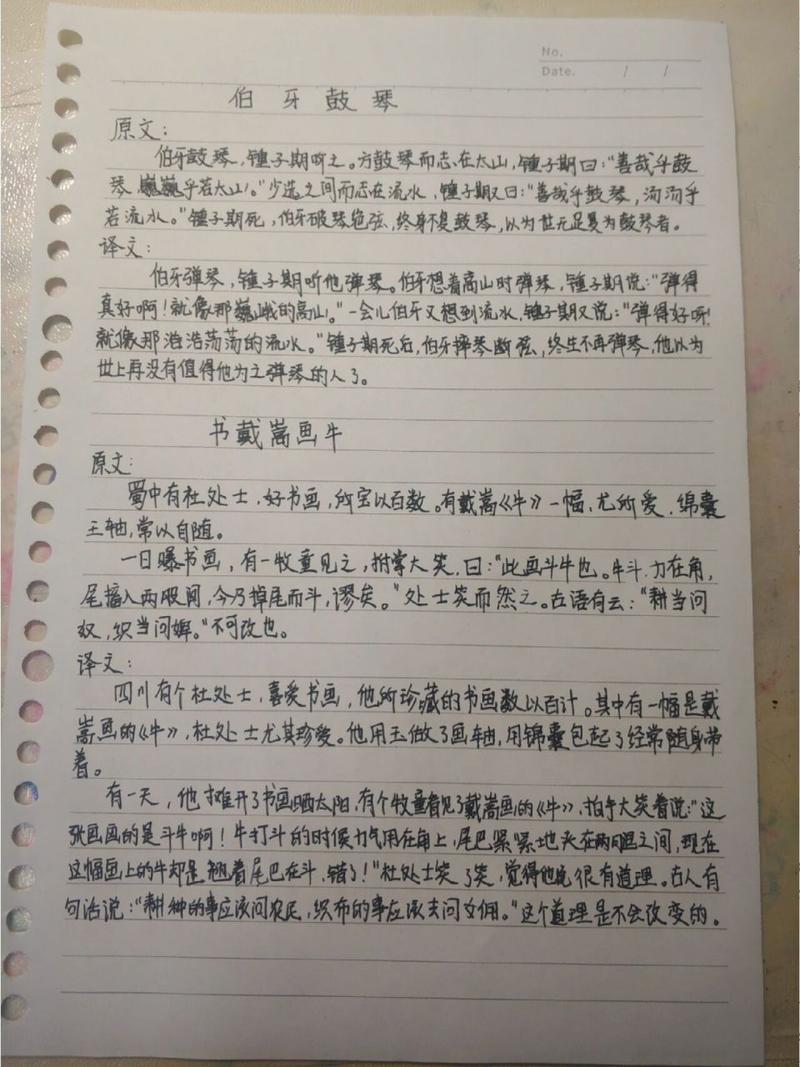 No.
Date. / /
伯牙鼓琴
原文:
伯牙鼓琴,锺子期听之。方鼓琴而志在太山,锺子期曰:"善哉乎鼓
琴,巍巍乎若太山。"少选之间而志在流水,锺子期又曰:"善哉乎鼓琴,汤汤乎
若流水。"锺子期死,伯牙破琴绝弦,终身不复鼓琴,以为世无足复为鼓琴者。
译文:
伯牙弹琴,锺子期听他弹琴。伯牙想着高山时弹琴,锺子期说:"弹得
真好啊!就像那巍峨的高山。"一会儿伯牙又想到流水,锺子期又说:"弹得好呀!
就像那浩浩荡荡的流水。"锺子期死后,伯牙摔琴断弦,终生不再弹琴,他以为
世上再没有值得他为之弹琴的人了。
书戴嵩画牛
原文:
蜀中有杜处士,好书画,所宝以百数。有戴嵩《牛》一幅,尤所爱,绵囊
玉轴,常以自随。
一日曝书画,有一牧童见之,拊掌大笑,曰:"此画斗牛也。牛斗,力在角,
尾搐入两股间,今乃掉尾而斗,谬矣。"处士笑而然之。古语有云:"耕当问
奴,织当问婢。"不可改也。
译文:
四川有个杜处士,喜爱书画,他所珍藏的书画数以百计。其中有一幅是戴
嵩画的《牛》,杜处士尤其珍爱。他用玉做了画轴,用锦囊包起了经常随身带
着。
有一天,他摊开了书画晒太阳,有个牧童看见了戴嵩画的《牛》,拍手大笑着说:"这
张画画的是斗牛啊!牛打斗的时候力气用在角上,尾巴紧紧地夹在两腿之间,现在
这幅画上的牛却是翘着尾巴在斗,错了!"杜处士笑了笑,觉得他说很有道理。古人有
句话说:"耕种的事应该问农民,织布的事应该去问女佣。"这个道理是不会改变的。